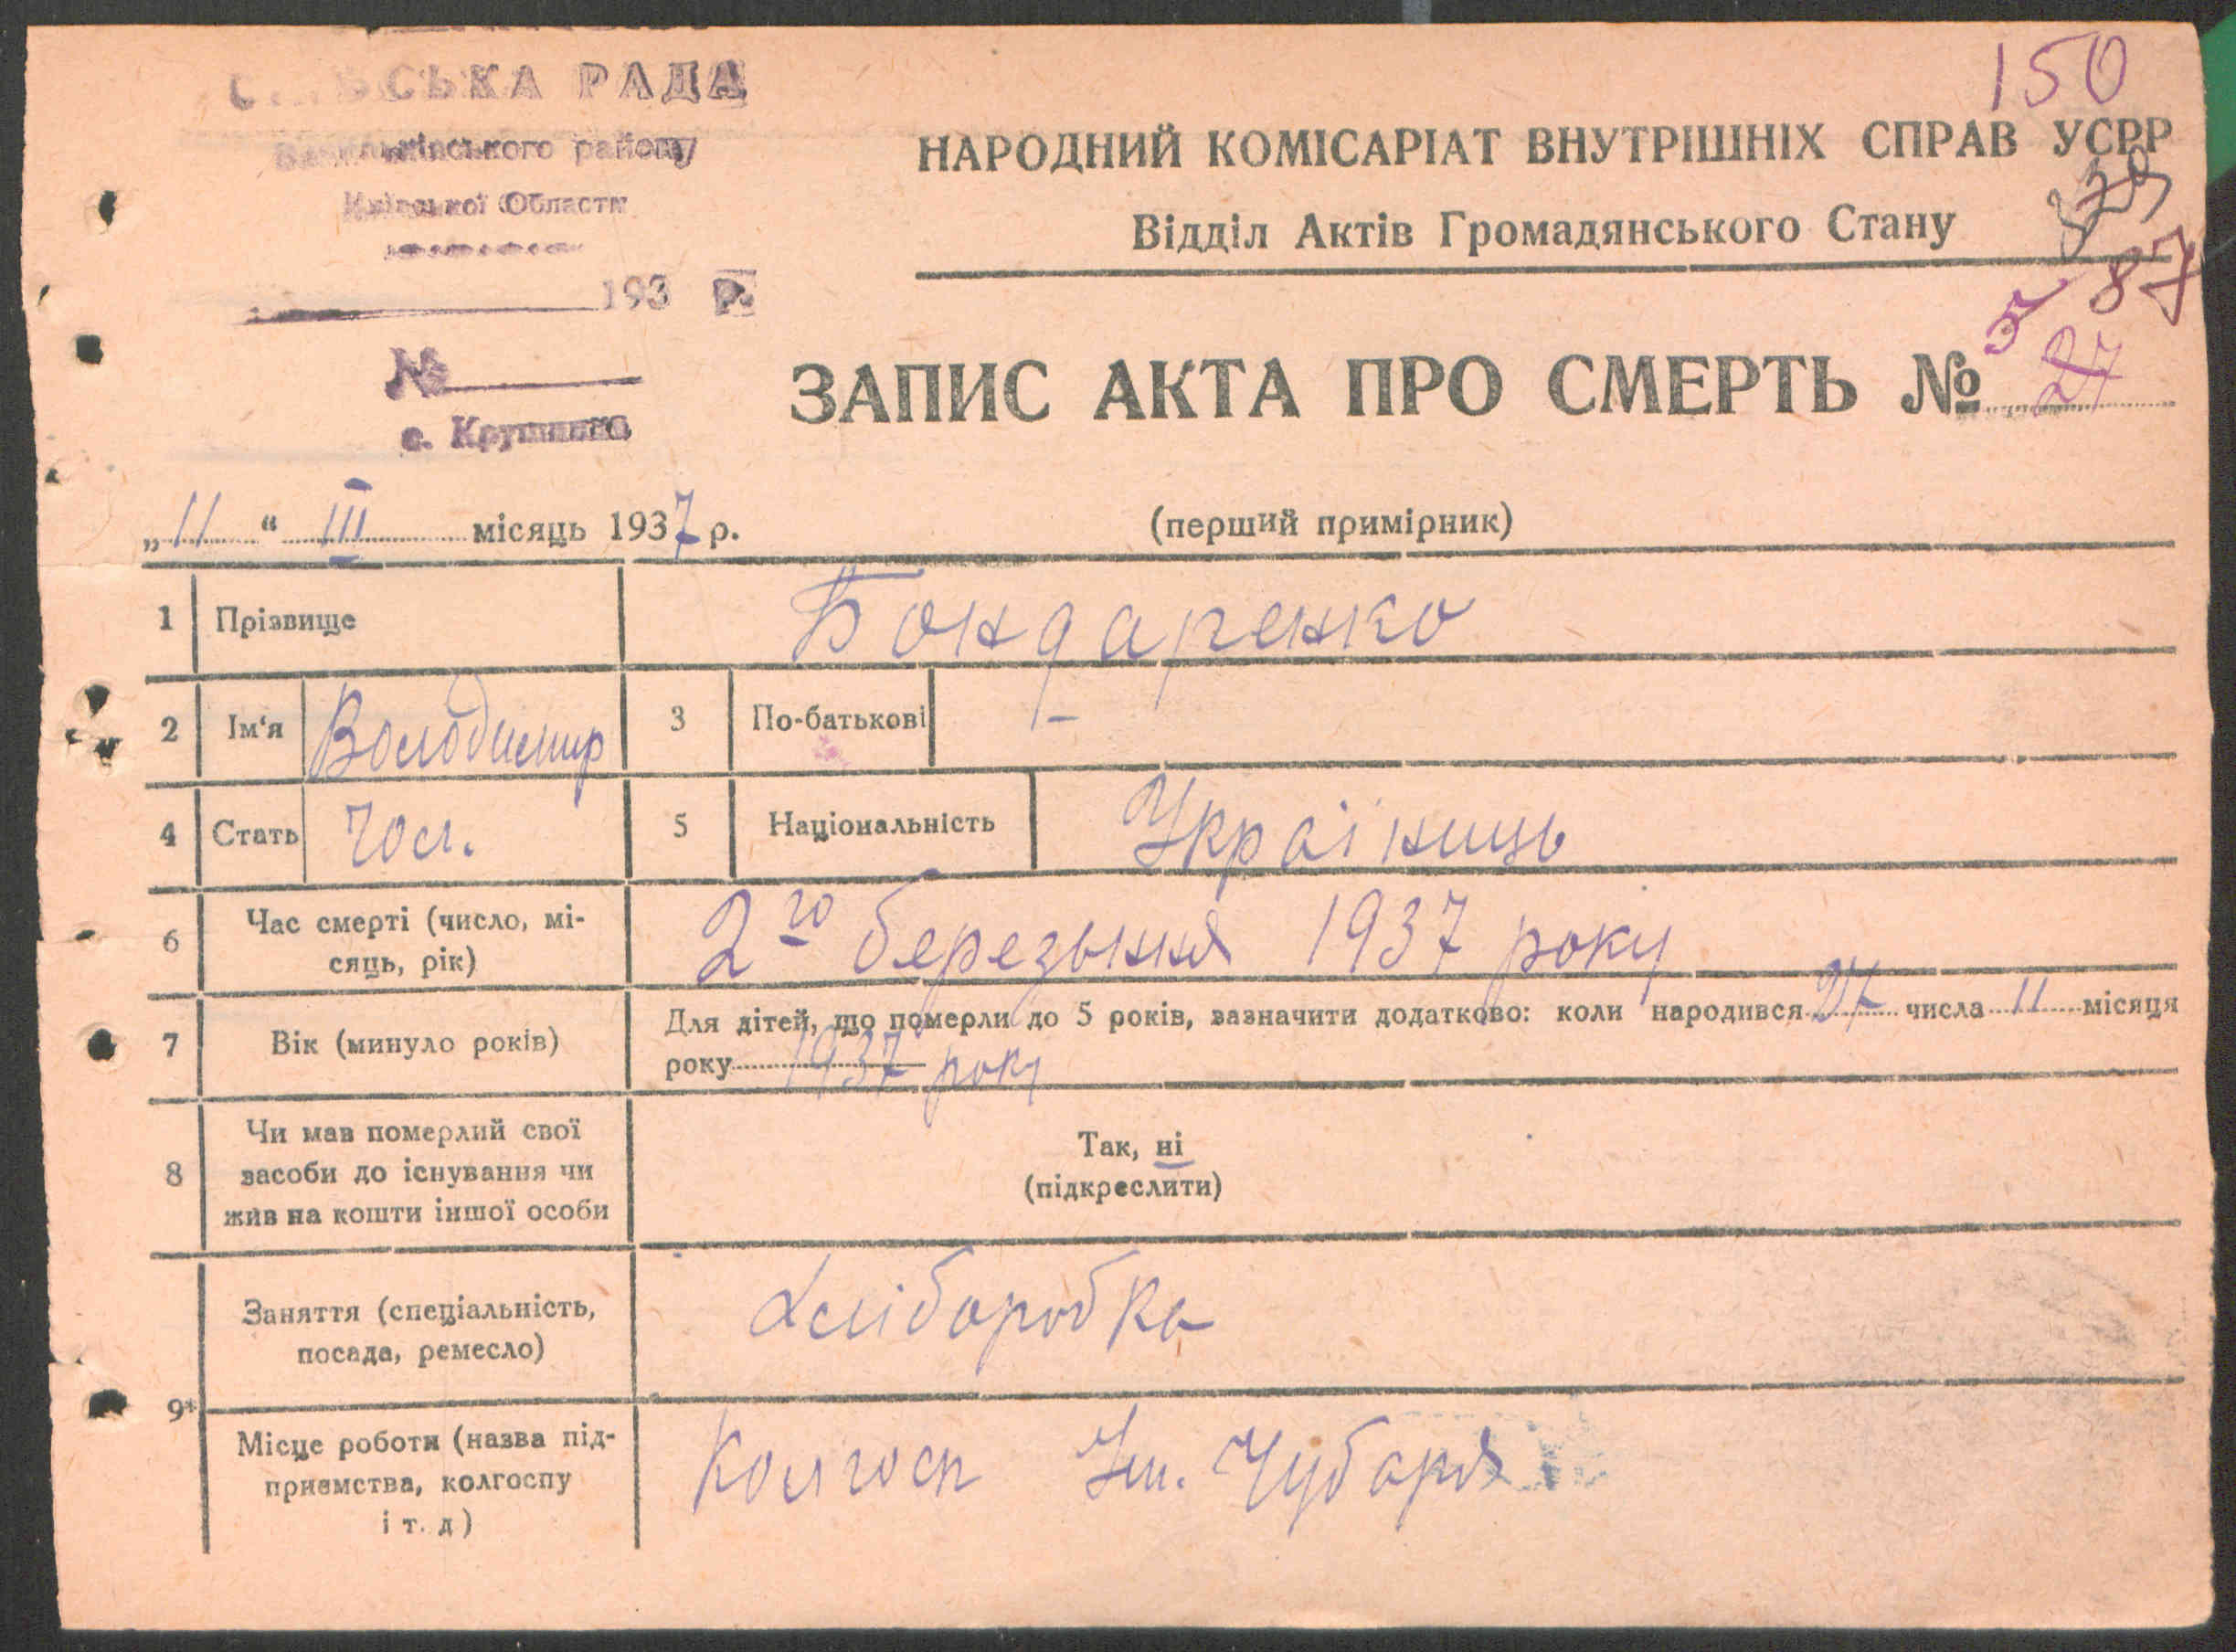 150
СЬКА РАДА
району
Київської Области
193 р.
№
с. Крушинка
НАРОДНИЙ КОМІСАРІАТ ВНУТРІШНІХ СПРАВ УСРР
Відділ Актів Громадянського Стану
87
ЗАПИС АКТА ПРО СМЕРТЬ № 27
„11“ III місяць 1937 р.
(перший примірник)
1 Прізвище Бондаренко
2 Ім‘я Володимир 3 По-батькові –
4 Стать Чол. 5 Національність Українць
6 Час смерті (число, мі-
сяць, рік) 2го березьння 1937 року
7 Вік (минуло років) Для дітей, що померли до 5 років, зазначити додатково: коли народився 27 числа 11 місяця
року 1937 року
8 Чи мав померлий свої
засоби до існування чи
жив на кошти іншої особи
Так, ні
(підкреслити)
9* Заняття (спеціальність,
посада, ремесло) Хліборобка
Місце роботи (назва під-
приємства, колгоспу
і т. д) Колгосп Ім. Чубаря